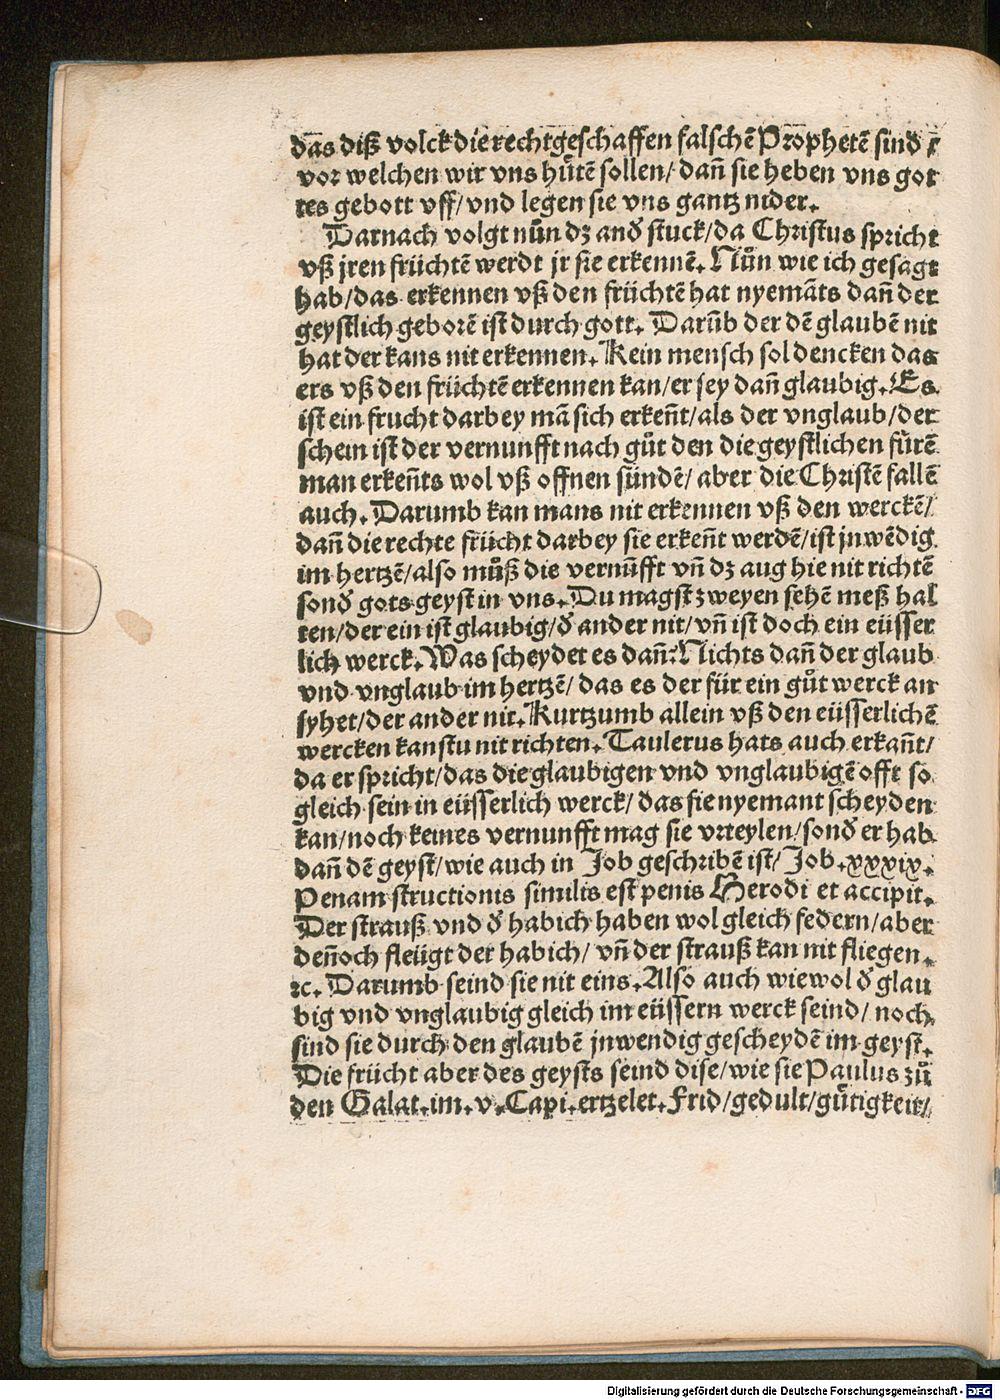 das diß volck die rechtgeschaffen falschē Prophetē sind /
vor welchen wir vns hůtē sollen/ dañ sie heben vns got
tes gebott vff/vnd legen sie vns gantz nider.
Darnach volgt nůn dz and̄ stuck/da Christus spricht
vß jren früchtē werdt jr sie erkennē. Nůn wie ich gesagt
hab/das erkennen vß den früchtē hat nyemāts dañ der
geystlich geborē ist durch gott. Darūb der dē glaubē nit
hat der kans nit erkennen. Kein mensch sol dencken das
ers vß den früchtē erkennen kan/er sey dañ glaubig. Es
ist ein frucht darbey mā sich erkeñt/als der vnglaub/der
schein ist der vernunfft nach gůt den die geystlichen fůrē
man erkeñts wol vß offnen sündē/ aber die Christē fallē
auch. Darumb kan mans nit erkennen vß den werckē/
dañ die rechte frücht darbey sie erkeñt werdē/ist jnwēdig
im hertzē/also můß die vernūfft vñ dz aug hie nit richtē
sond̄ gots geyst in vns. Du magst zweyen sehē meß hal
ten/der ein ist glaubig/d̄ ander nit/vñ ist doch ein eüsser
lich werck. Was scheydet es dañ? Nichts dañ der glaub
vnd vnglaub im hertzē/ das es der für ein gůt werck an
syhet/der ander nit. Kurtzumb allein vß den eüsserlichē
wercken kanstu nit richten. Taulerus hats auch erkañt/
da er spricht/das die glaubigen vnd vnglaubigē offt so
gleich sein in eüsserlich werck/ das sie nyemant scheyden
kan/noch keines vernunfft mag sie vrteylen/sond̄ er hab
dañ dē geyst/wie auch in Job geschribē ist/ Job.xxxix.
Penam structionis similis est penis Herodi et accipit.
Der strauß vnd d̄ habich haben wol gleich federn/aber
deñoch fleügt der habich/ vñ der strauß kan nit fliegen.
ꝛc. Darumb seind sie nit eins. Also auch wiewol d̄ glau
big vnd vnglaubig gleich im eüssern werck seind/ noch
sind sie durch den glaubē jnwendig gescheydē im geyst.
Die frücht aber des geysts seind dise/wie sie Paulus zů
den Galat.im.v.Capi.ertzelet. Frid/gedult/gůtigkeit/
Digitalisierung gefördert durch die Deutsche Forschungsgemeinschaft - DFG